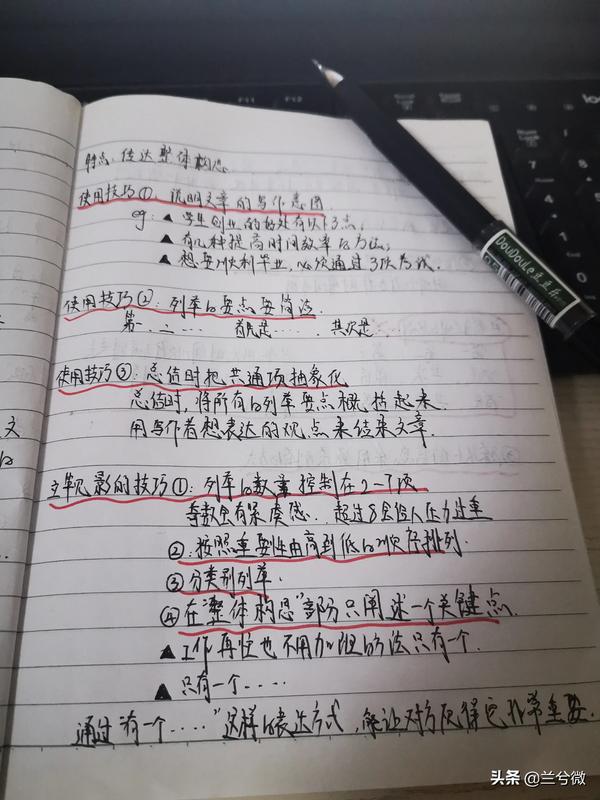 特点:传达整体构思
使用技巧①:说明文章的写作意图
eg:▲学生创业的好处有以下3点,
▲有几种提高时间效率的方法,
▲想要顺利毕业,必须通过3次考试.
使用技巧②:列举的要点要简洁
第一.二…… 首先是…… 其次是
使用技巧③:总结时把共通项抽象化
总结时,将所有的列举要点概括起来.
用写作者想表达的观点来结束文章.
立竿见影的技巧①:列举的数量控制在2-7项
奇数会有 超过8会给人压力过重
②:按照重要性由高到低的次序排列.
③分类别列举.
④在"整体构思"部分只阐述一个关键点.
▲工作再忙也不用加班的方法只有一个.
▲只有一个……
通过"有一个……"这样的表达方式,能让对方觉得它非常重要.
文
的
F11
F12
7
4
1
DouDouLe
头条 @兰兮微